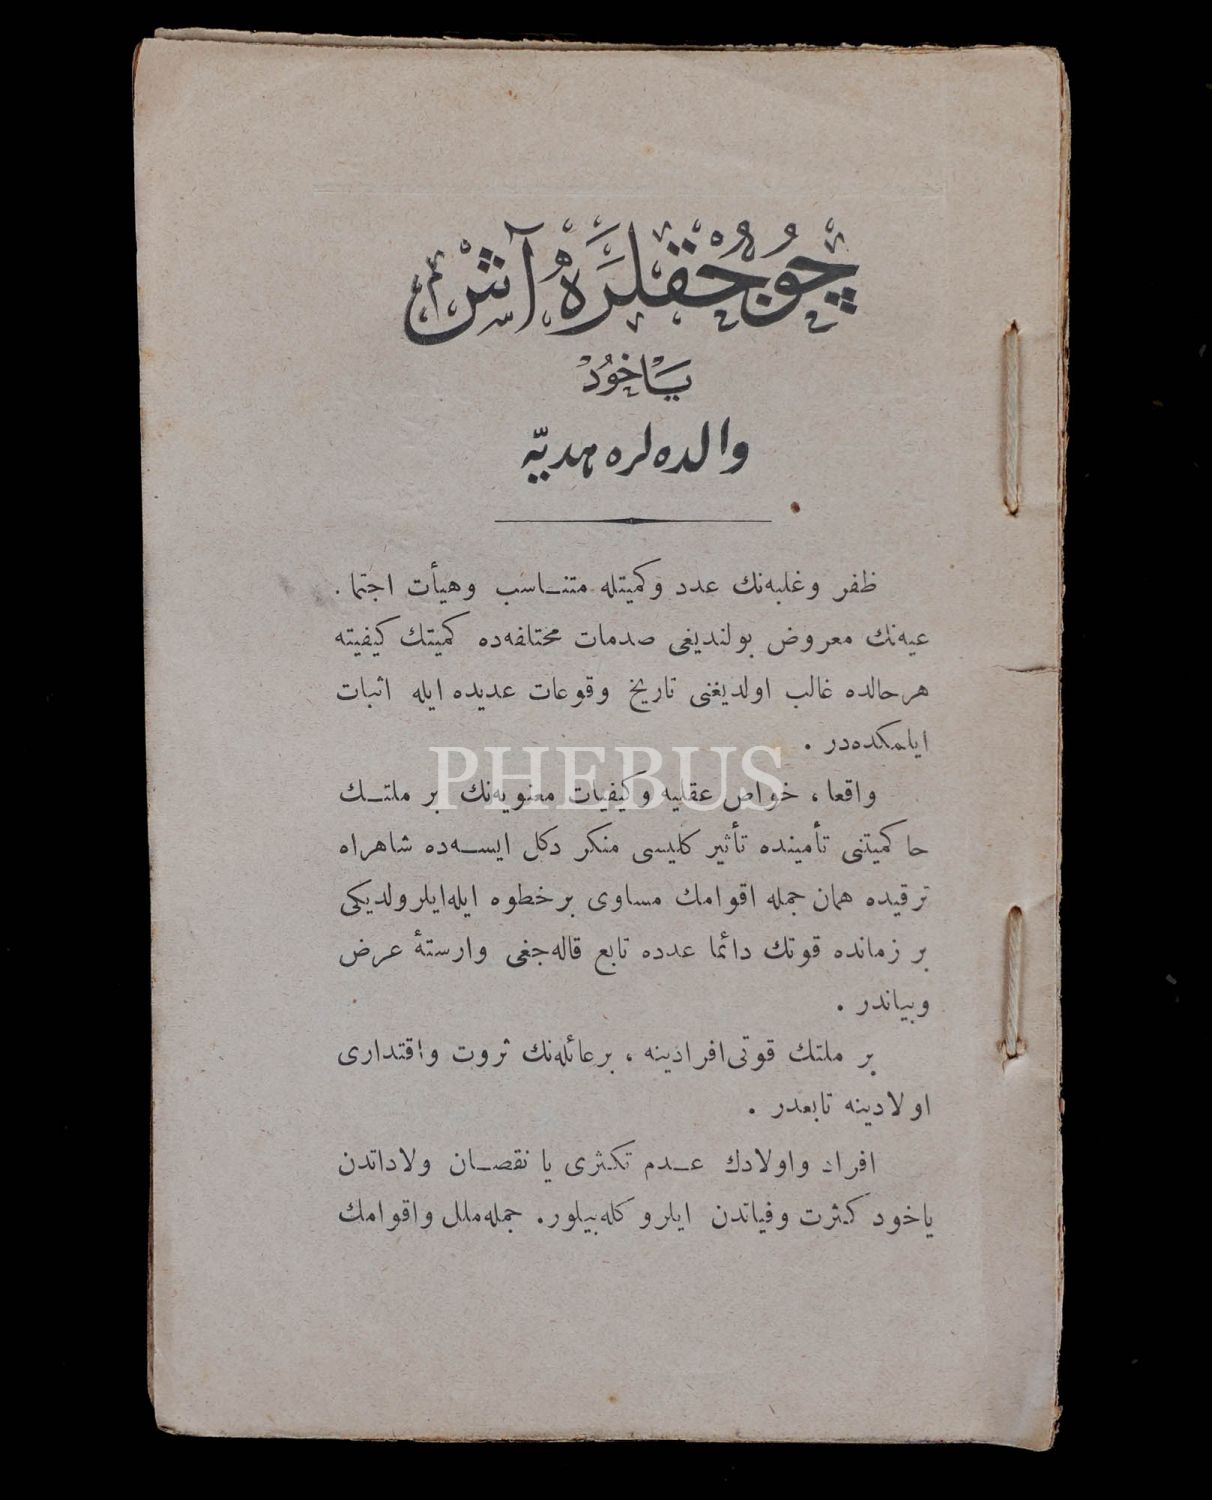 چوجقلره آش
یاخود
والده‌لره هدیه
ظفر وغلبه‌نك عدد وكمیتله متناسب وهیأت اجتما .
عیه‌نك معروض بولندیغی صدمات مختلفه‌ده كمیتك كیفیته
هرحالده غالب اولدیغنی تاریخ وقوعات عدیده ایله اثبات
ایلمكده‌در .
واقعا ، خواص عقلیه وكیفیات معنویه‌نك بر ملتك
حاكمیتنی تأمینده تأثیر كلیسی منكر دكل ایسه‌ده شاهراه
ترقیده همان جمله اقوامك مساوی برخطوه ایله ایلرولدیكی
بر زمانده قوتك دائما عدده تابع قاله‌جغی وارستهٔ عرض
وبیاندر .
بر ملتك قوتی افرادینه ، برعائله‌نك ثروت واقتداری
اولادینه تابعدر .
افراد واولادك عدم تكثری یا نقصان ولاداتدن
یاخود كثرت وفیاتدن ایلرو كله‌بیلور. جمله ملل واقوامك
PHEBUS